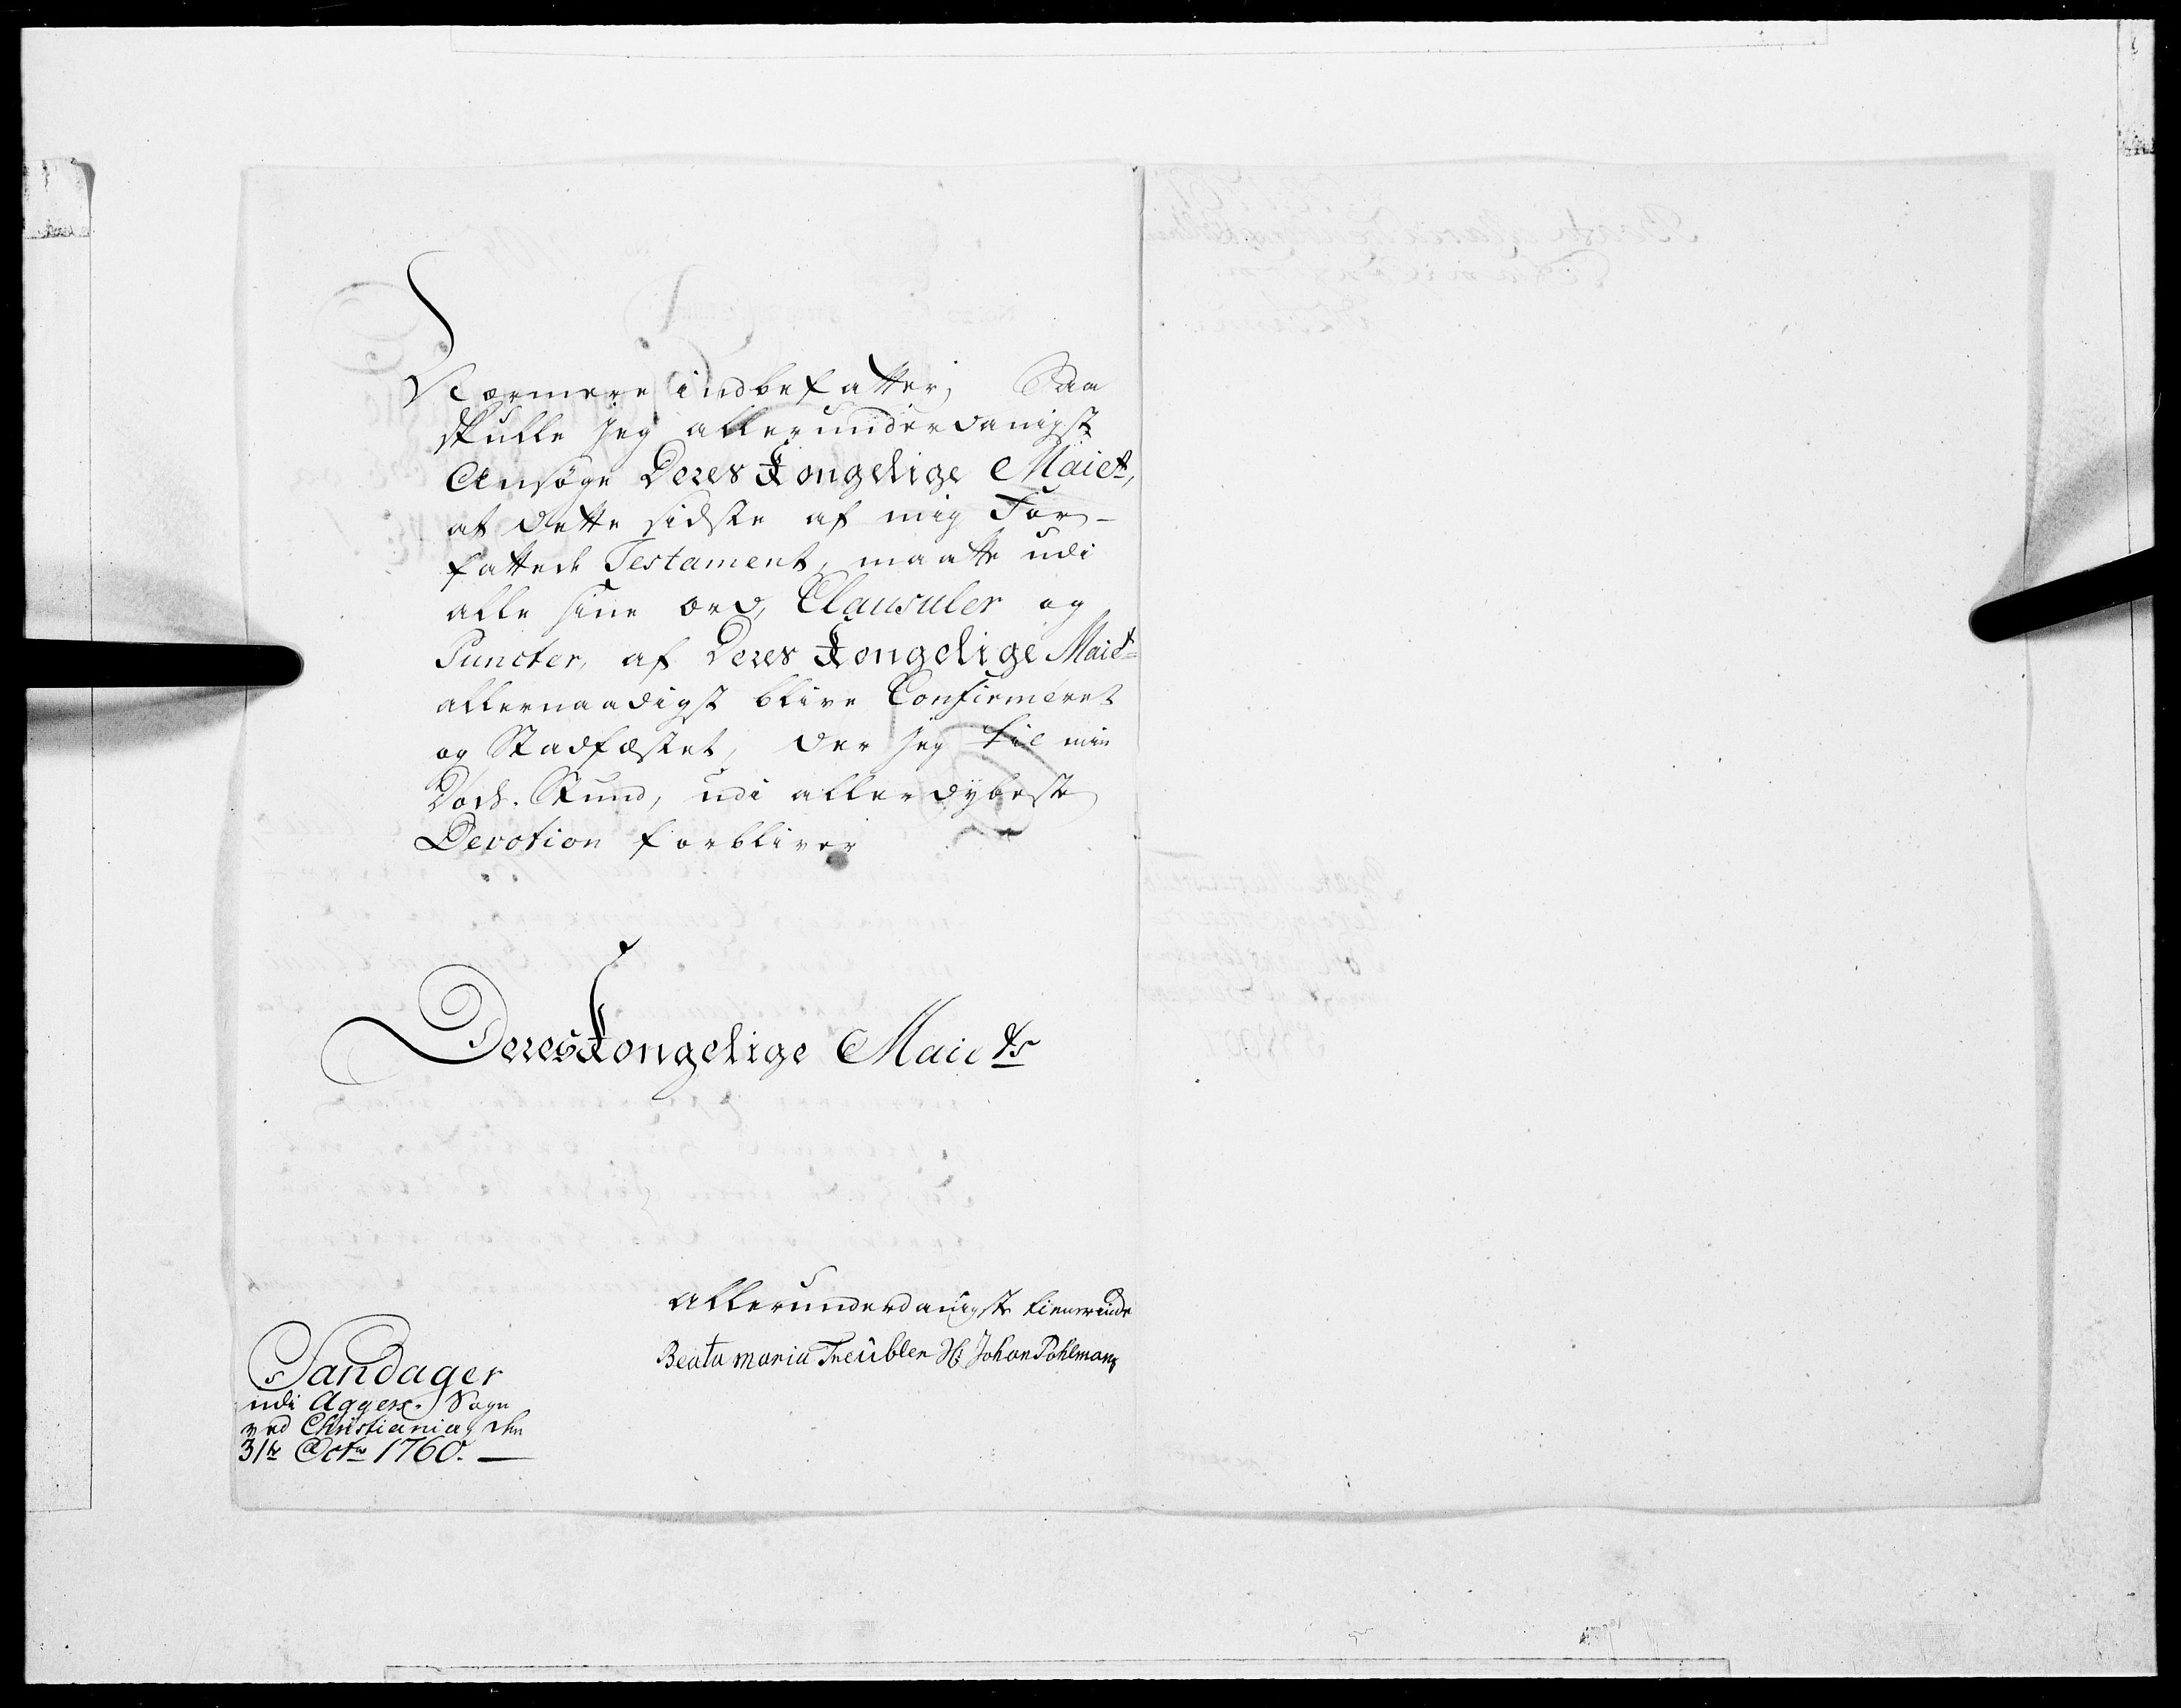 Nærmere indbefatter, Saa
skulle jeg allerunderdanigst
Ansøge Deres Kongelige Maiet,
at dette sidste af mig For-
fattede Testament, maatte udi
alle sine ord, Clausuler og
Puncter, af Deres Kongelige Maiet
allernaadigst blive Confirmeret
og Stadfæstet, der jeg til min
Døds. Stund, udi allerdybeste
Devotion forbliver
Deres Kongelige Maiets
allerunderdanigste tienerinde
Beata maria Treübler Johan Pohlmans
Sandager
udi Aggers Sogn
ved Christiania, den
31te Octbr 1760.